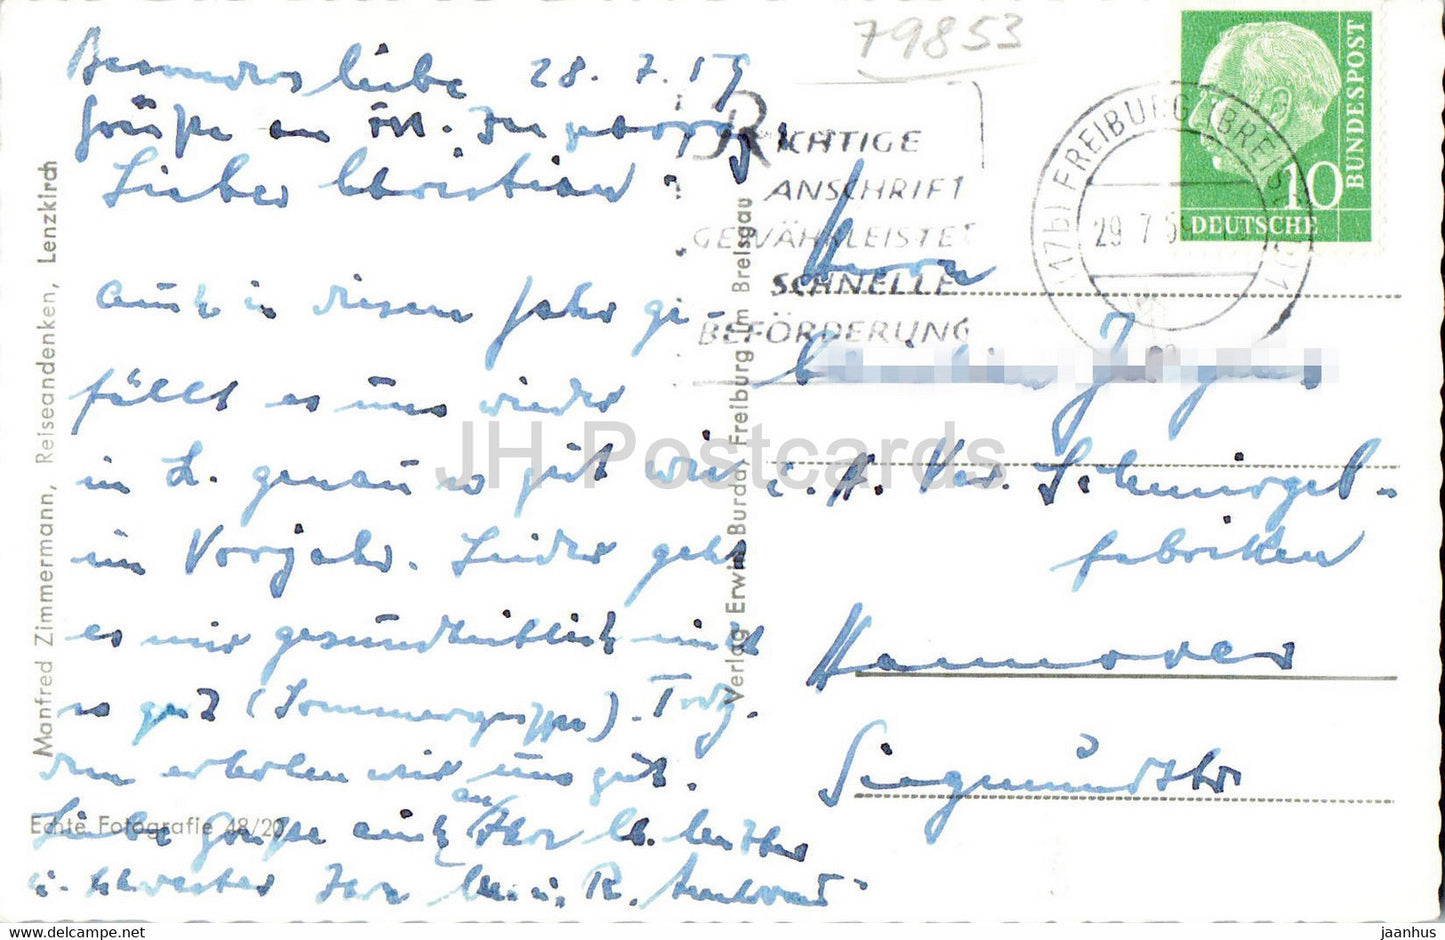 Besonders liebe 28. 7. 59
Grüße an
Lieber Christian!
Auch in diesem Jahr ge-
fällt es uns wieder
in L. genau so gut wie
im Vorjahr. Leider geht
es mir gesundheitlich nicht
so gut (Sommergrippe). Trotz-
dem erholen wir uns gut.
Liebe Grüße auch an Ihre lb. Mutter
u. Schwester Ihre
79853
RICHTIGE
ANSCHRIFT
GEWÄHRLEISTET
SCHNELLE
BEFÖRDERUNG
(17b) FREIBURG (BREISGAU)
29.7.59
10
DEUTSCHE
BUNDESPOST
Herrn
i. H. Ver. Schmirgel-
fabriken
Hannover
Siegmundstr
Manfred Zimmermann, Reiseandenken, Lenzkirch
Verlag Erwin Burda, Freiburg im Breisgau
Echte Fotografie 48/20
JH Postcards
www.delcampe.net
jaanhus